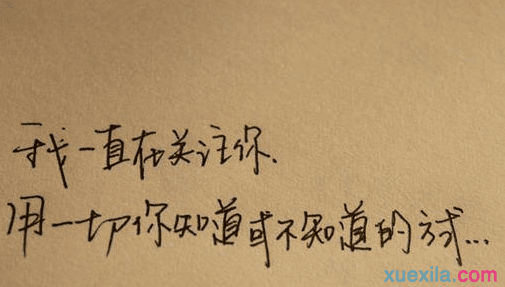 我一直在关注你.
用一切你知道或不知道的方式...
xuexila.com